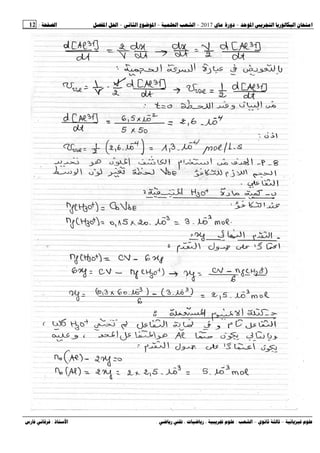 امتحان البكالوريا التجريبي الموحد - دورة ماي 2017 - الشعب العلمية - الموضوع الثاني - الحل المفصل الصفحة - 12
d[Al³⁺]/dt = 2 dx/V dt → dx/dt = V/2 d[Al³⁺]/dt
بالتعويض في عبارة السرعة الحجمية :
v_vol = 1/V · V/2 d[Al³⁺]/dt → v_vol = 1/2 d[Al³⁺]/dt
من البيان وعند اللحظة t=0 :
d[Al³⁺]/dt = 6,5×10⁻² / 5×50 = 2,6·10⁻⁴
اذن :
v_vol = 1/2 (2,6·10⁻⁴) = 1,3·10⁻⁴ mol/L.s
الهدف من استخدام الكاشف الملون هو تحديد
الحجم اللازم للتكافؤ V_bE لحظة تغير لون الوسط
التفاعلي .
ب- كمية مادة H₃O⁺ المتبقية :
عند التكافؤ :
n_f(H₃O⁺) = C_b V_bE
n_f(H₃O⁺) = 0,15×20·10⁻³ = 3·10⁻³ mol.
- التقدم النهائي x_f :
اعتمادا على جدول التقدم :
n_f(H₃O⁺) = CV - 6x_f
6x_f = CV - n_f(H₃O⁺) → x_f = CV - n_f(H₃O⁺) / 6
x_f = (0,3×60·10⁻³) - (3·10⁻³) / 6 = 2,5·10⁻³ mol
جـ- كتلة الألمنيوم المستعملة :
التفاعل تام و في نهاية التفاعل لم تختفي H₃O⁺ كليا ،
وبالتالي يكون حتما Al هو المتفاعل المحد ، وعليه
يكون اعتمادا على جدول التقدم :
n₀(Al) - 2x_f = 0
n₀(Al) = 2x_f = 2×2,5·10⁻³ = 5·10⁻³ mol
علوم فيزيائية - ثالثة ثانوي - الشعب : علوم تجريبية - رياضيات - تقني رياضي الأستاذ : فرقاني فارس